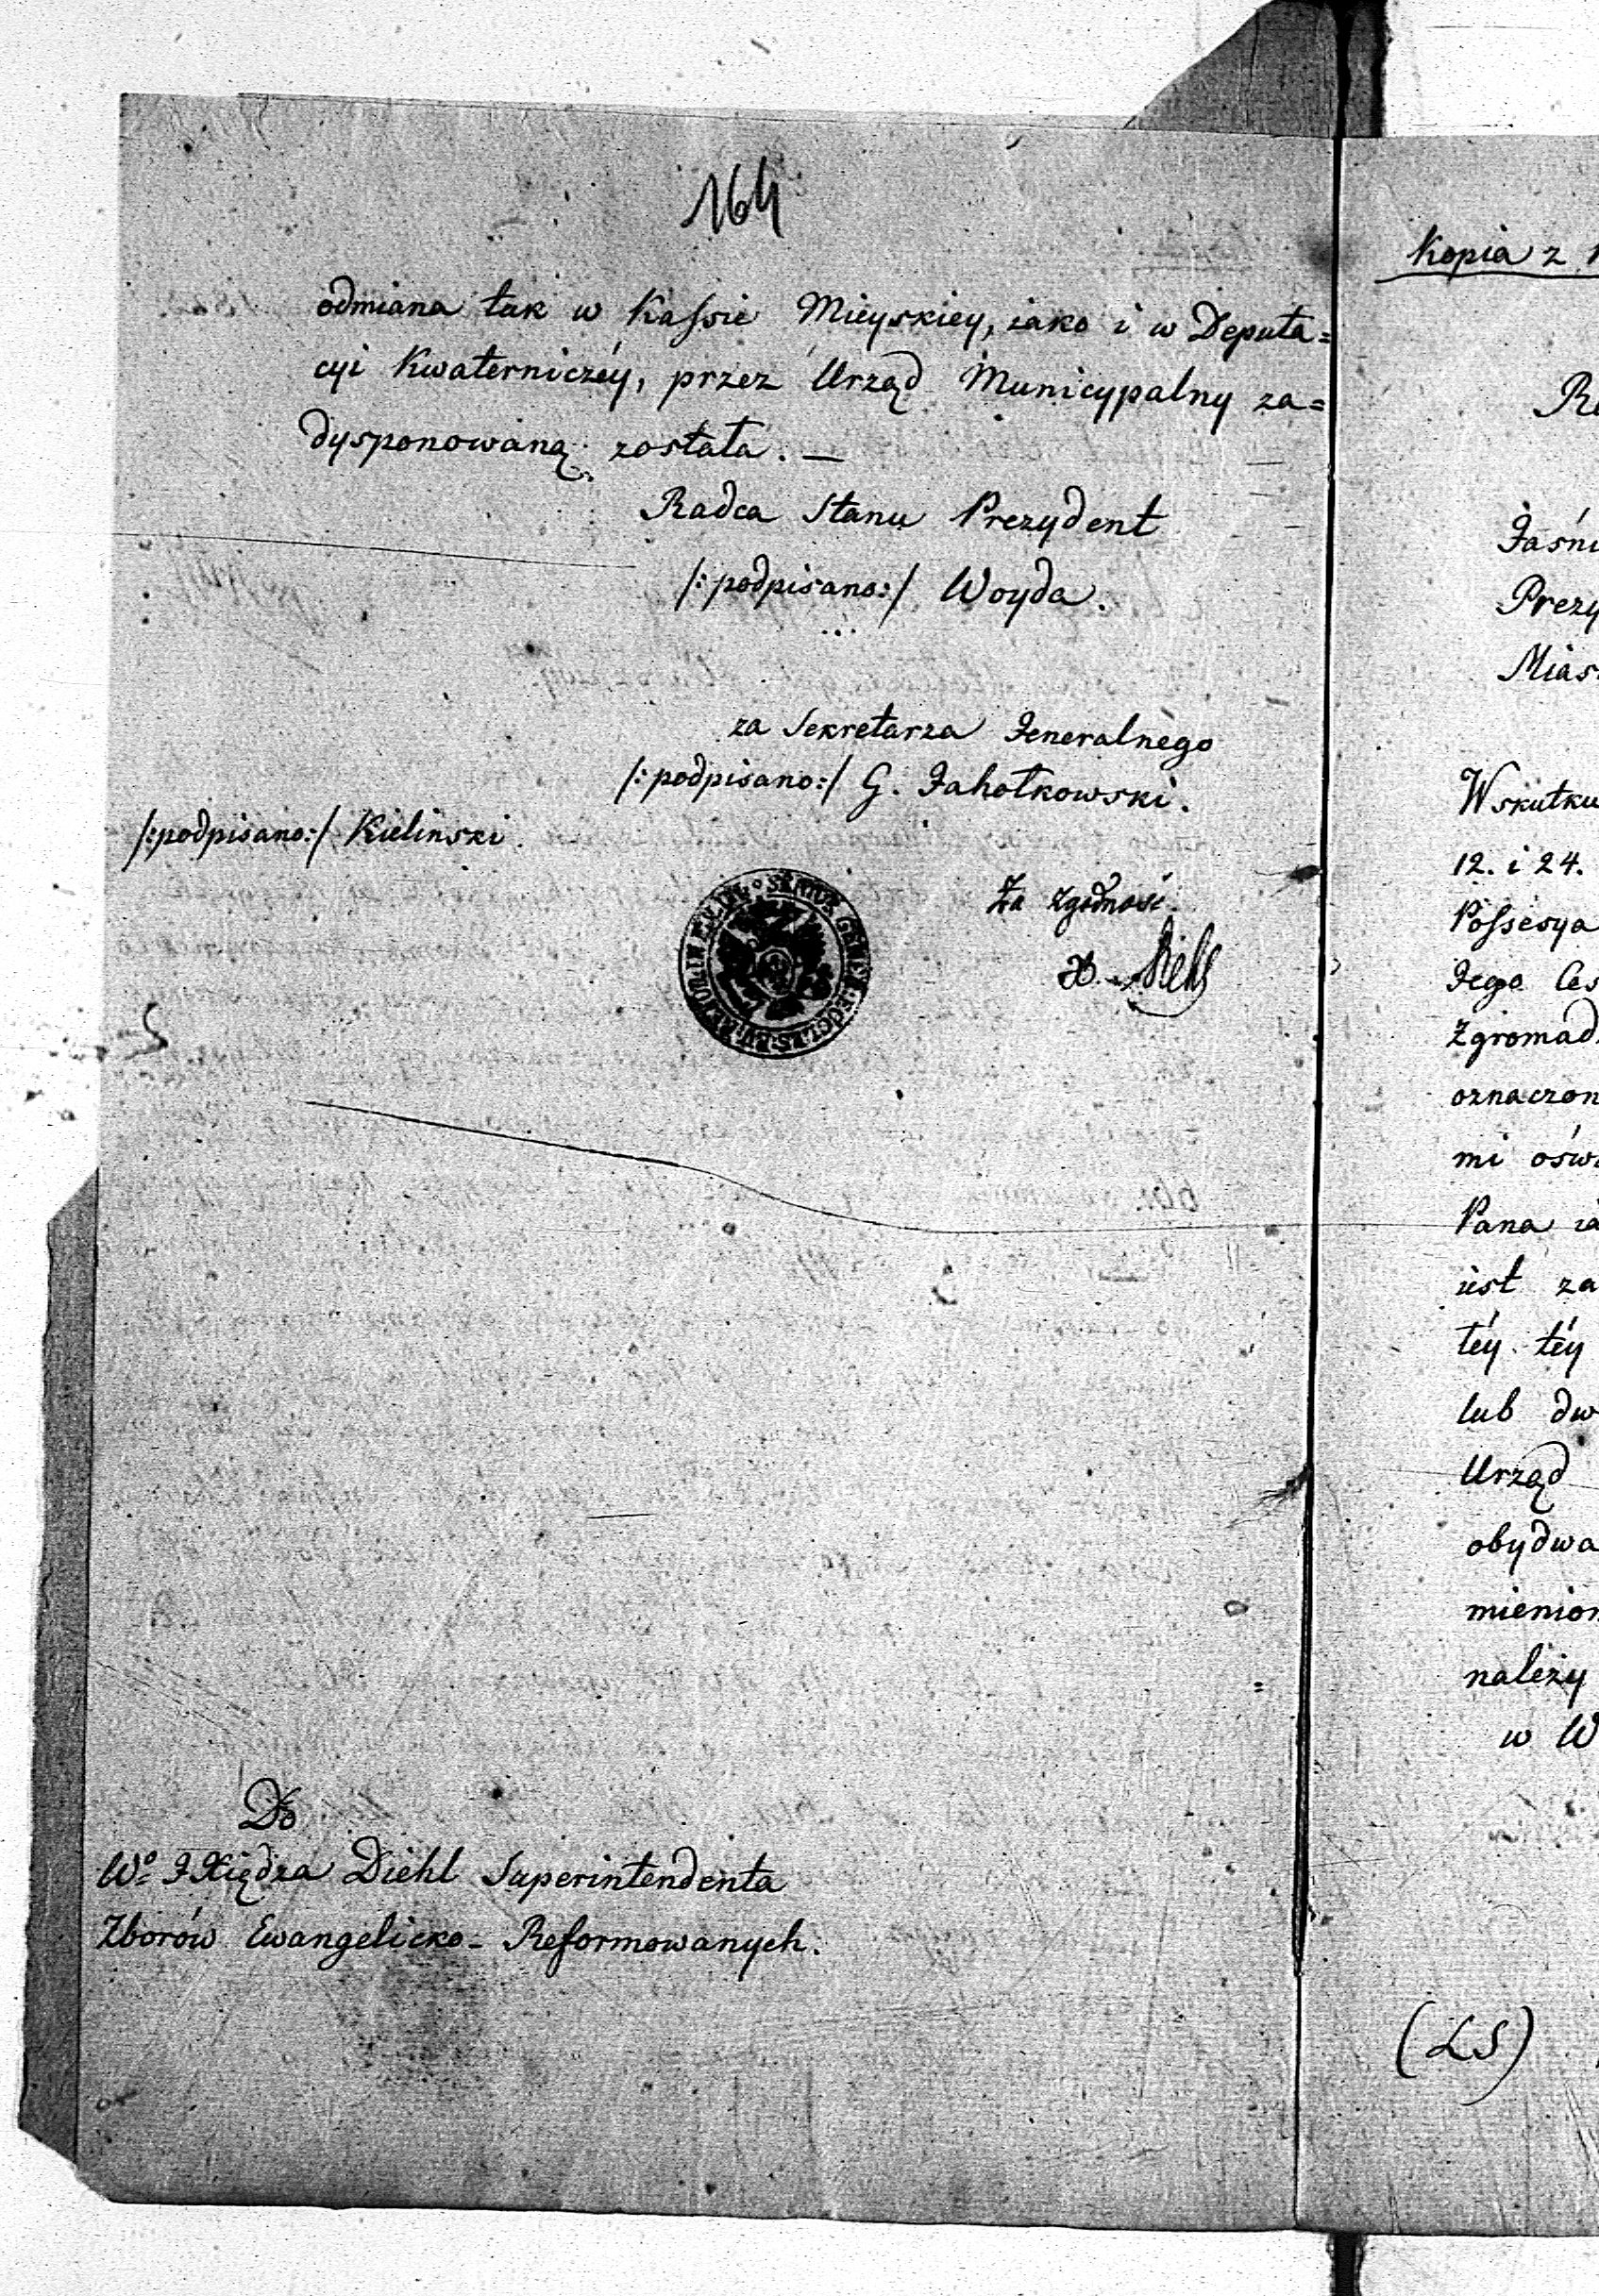 164
odmiana tak w Kassie Mieyskiey, iako i w Deputa=
cyi Kwaterniczéy, przez Urząd Municypalny za=
dysponowaną została. —
Radca Stanu Prezydent
/: podpisano:/ Woyda.
za Sekretarza Jeneralnego
/: podpisano:/ G. Jahołkowski.
/: podpisano:/ Kielinski.
Za zgodność.
Diehl
Do
Wo JXiędza Diehl Superintendenta
Zborów Ewangelicko-Reformowanych.
Kopia z
Jaśni
Prezy
Mias
Wskutku
12. i 24.
Possesya
Jego Ces
Zgromad
oznaczon
mi oświ
Pana ia
iest za
téy téy
lub dw
Urząd
obydwa
mienion
należy
w W
(LS)